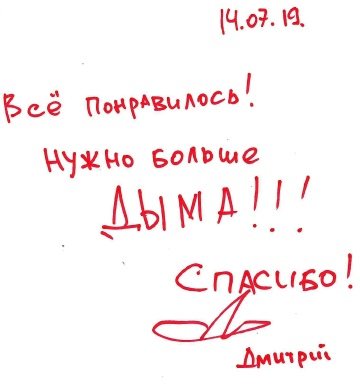 14.07.19.
Всё понравилось!
Нужно больше
ДЫМА!!!
Спасибо!
Дмитрий